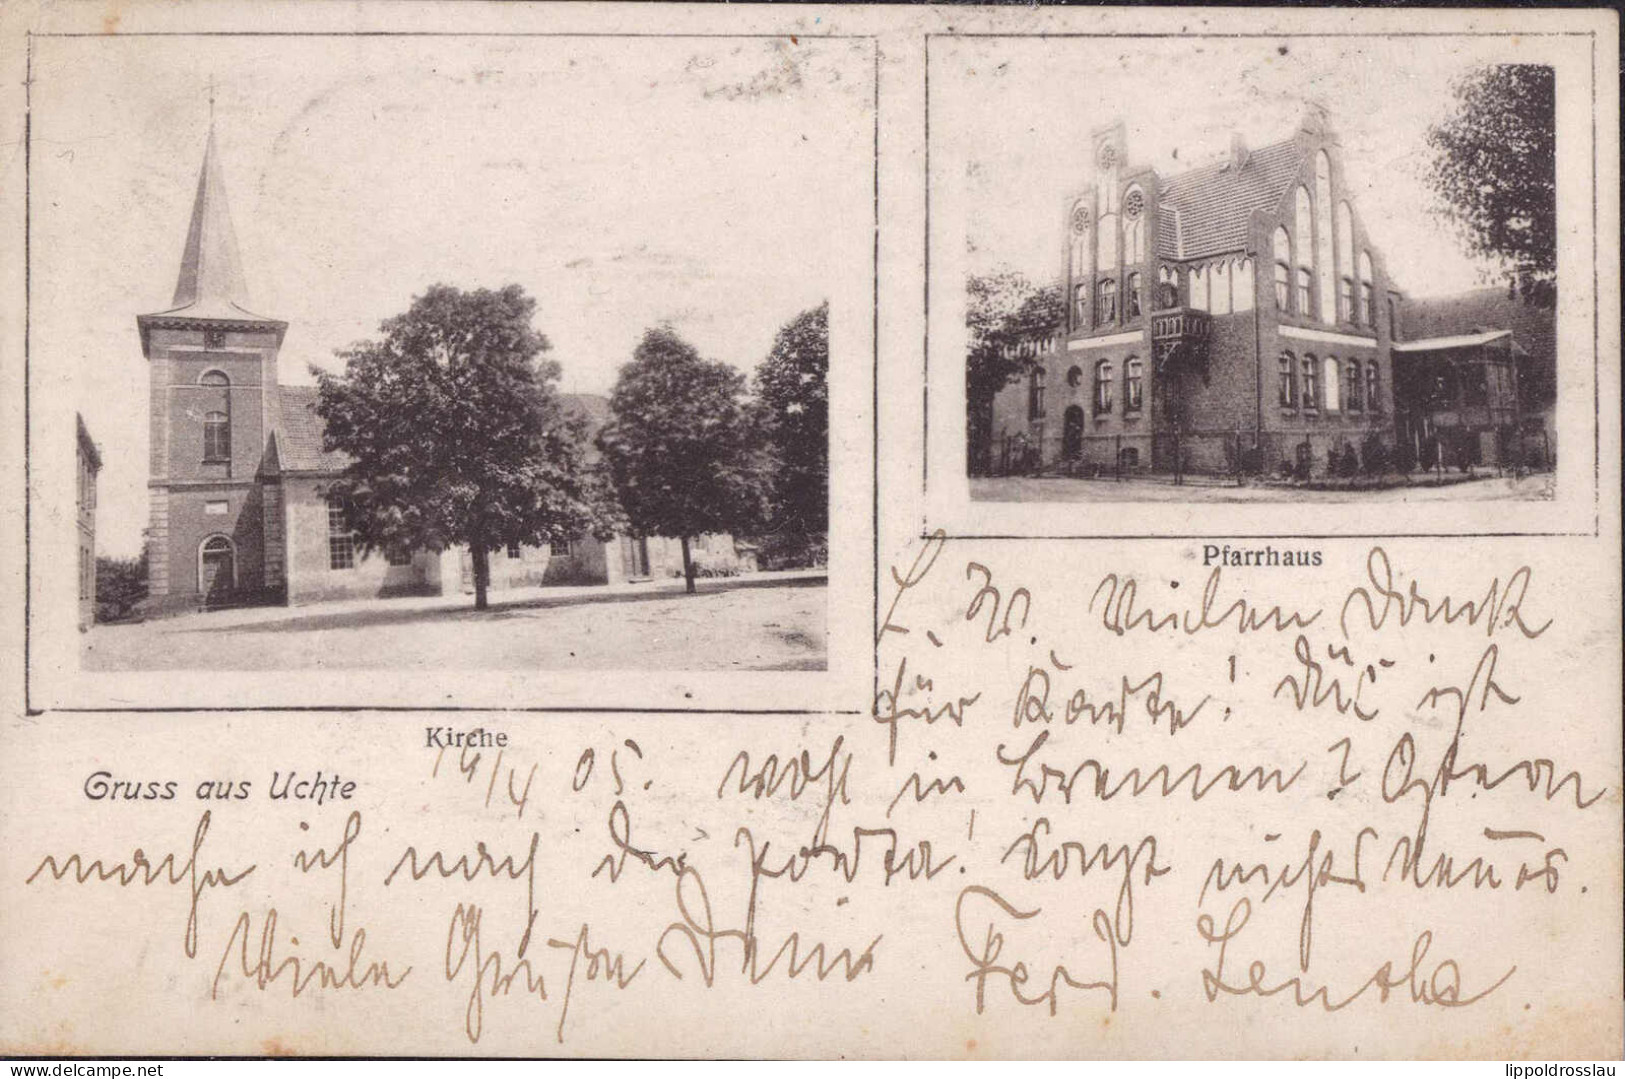 Pfarrhaus
Kirche
Gruss aus Uchte
14/4 05.
L. W. Vielen Dank
für Karte! Du ist
wohl in Bremen? Ostern
mache ich nach der Porta! Sonst nichts Neues.
Viele Grüße Dein Ferd.
© Delcampe.net
lippoldrosslau